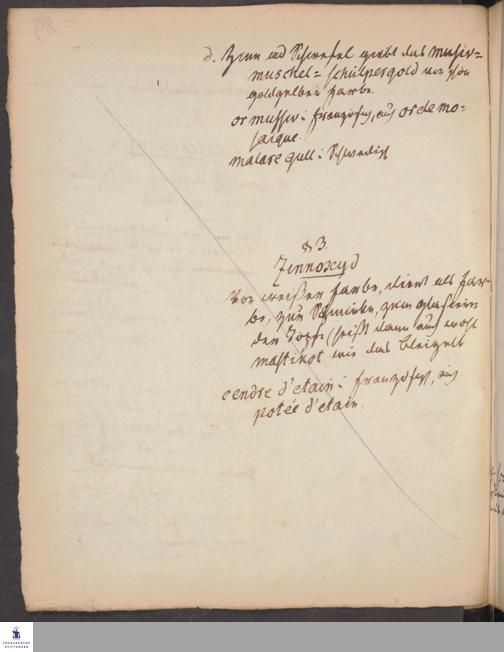 d. Zinn und Schwefel giebt das musiv=
muschel= schulpergold von schön
goldgelber Farbe.
or mussiv: französisch, auch or de mo-
saique.
malare gull: Schwedisch
§ 3.
Zinnoxyd
Von weißer Farbe, dient als Far-
be, zur Schminke, zum glasieren
der Töpfe (heißt dann auch wohl
mastikot wie das bleigelb
cendre d'etain: französisch, auch
potée d'etain.
FRANCKESCHE
STIFTUNGEN